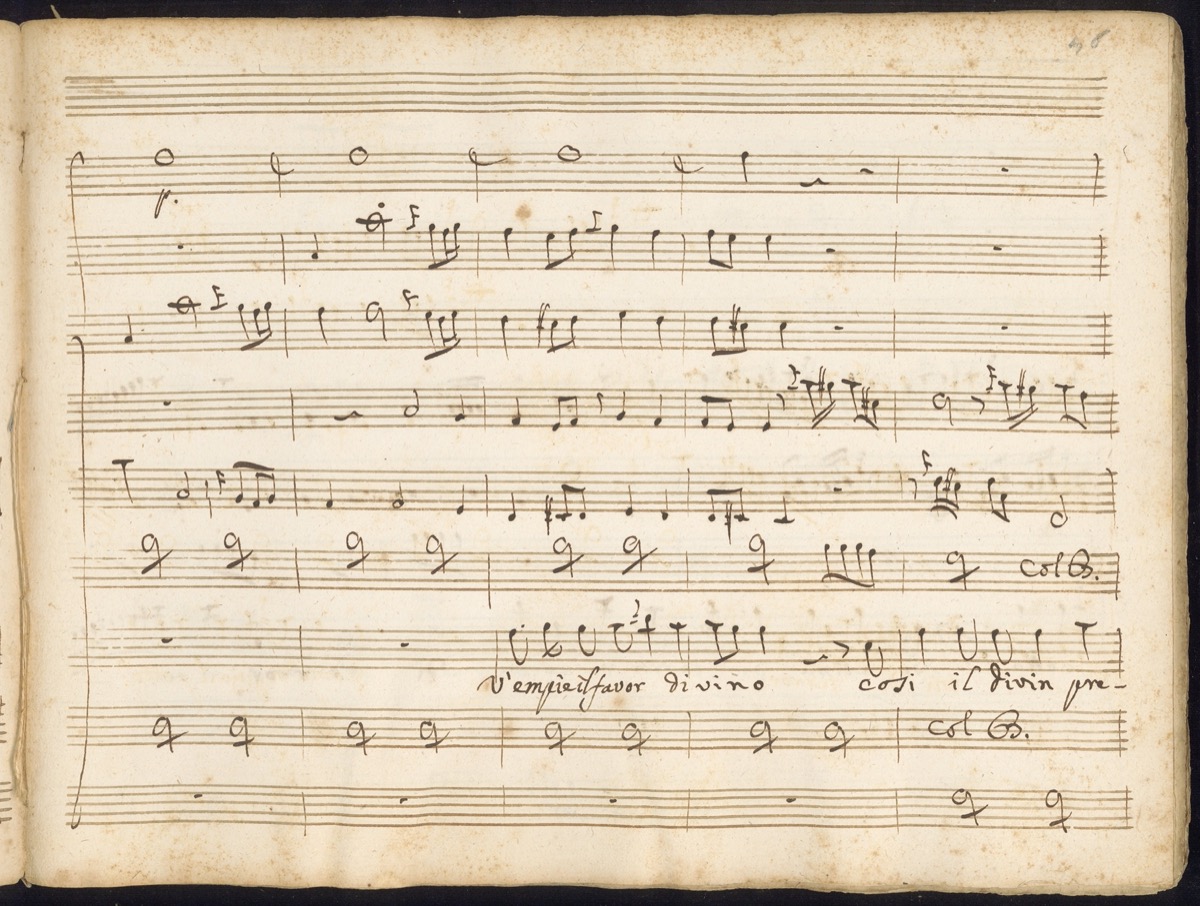 p.
col B.
v'empie il favor divino cosi il divin pre-
col B.